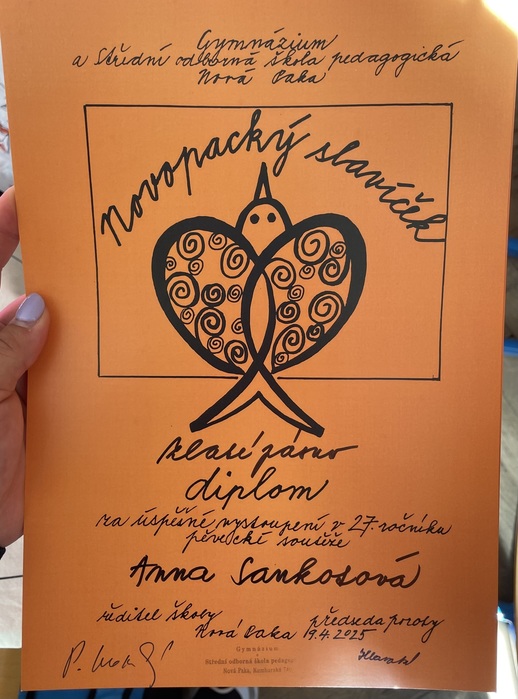 Gymnázium
a Střední odborná škola pedagogická
Nová Paka
Novopacký slavíček
zlaté pásmo
diplom
za úspěšné vystoupení v 27. ročníku
pěvecké soutěže
Anna Sankotová
ředitel školy předseda poroty
Nová Paka 19.4.2025
Gymnázium
Střední odborná škola pedagog
Nová Paka, Kumburská